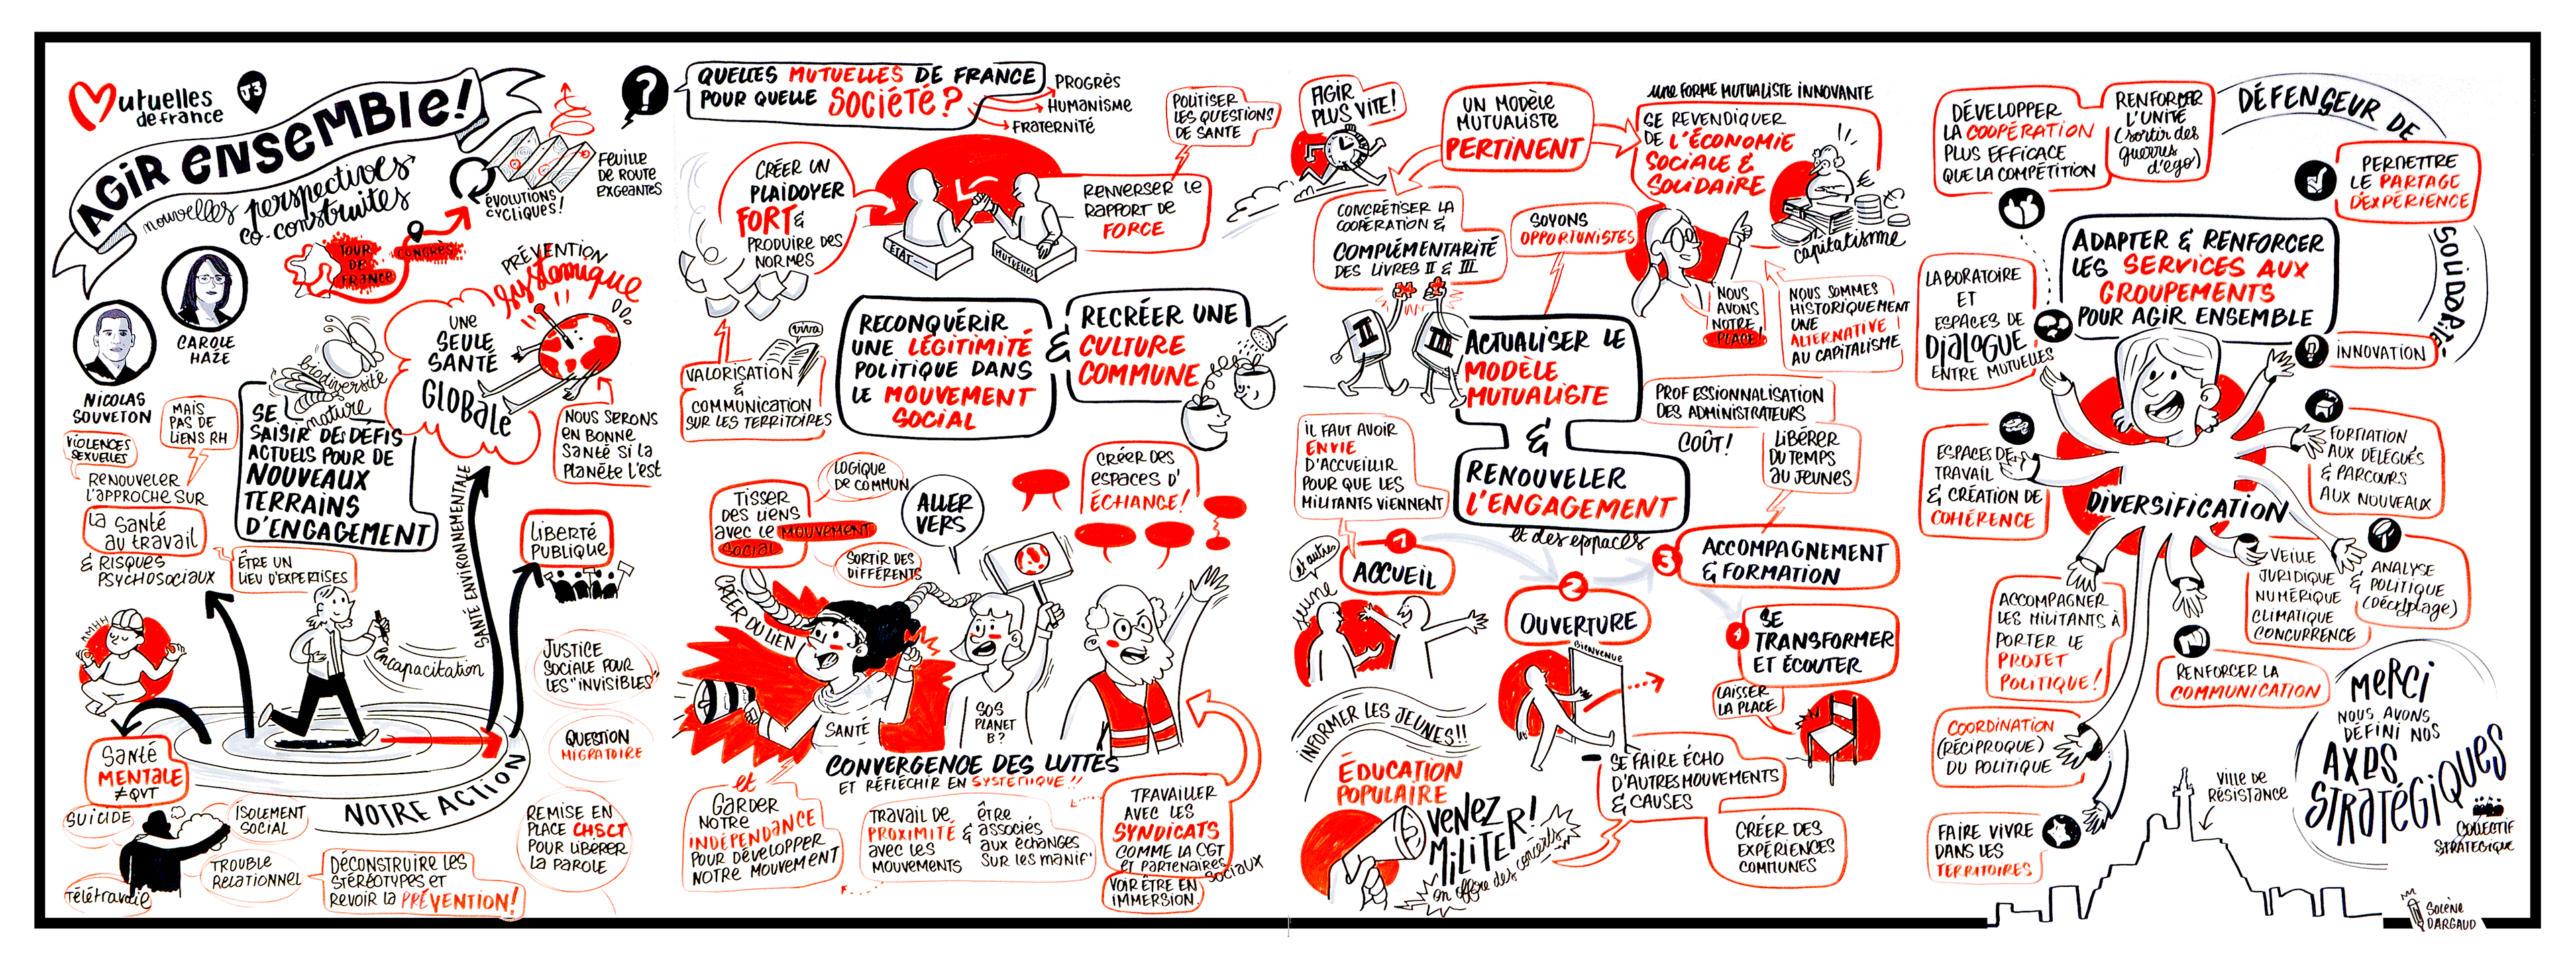 Mutuelles
de france
J3
AGIR ENSEMBLE!
nouvelles perspectives
co-construites
NICOLAS
SOUVETON
CAROLE
HAZE
TOUR
DE
FRANCE
CONGRÈS
ÉVOLUTIONS
CYCLIQUES!
FEUILLE
DE ROUTE
EXGEANTES
PRÉVENTION
systémique
UNE
SEULE
SANTÉ
GLOBALE
NOUS SERONS
EN BONNE
SANTÉ SI LA
PLANÈTE L'EST
biodiversité
nature
SE
SAISIR DES DÉFIS
ACTUELS POUR DE
NOUVEAUX
TERRAINS
D'ENGAGEMENT
MAIS
PAS DE
LIENS RH
VIOLENCES
SEXUELLES
RENOUVELER
L'APPROCHE SUR
LA SANTÉ
AU TRAVAIL
& RISQUES
PSYCHOSOCIAUX
ÊTRE UN
LIEU D'EXPERTISES
encapacitation
SANTÉ ENVIRONNEMENTALE
LIBERTÉ
PUBLIQUE
JUSTICE
SOCIALE POUR
LES "INVISIBLES"
QUESTION
MIGRATOIRE
REMISE EN
PLACE CHSCT
POUR LIBÉRER
LA PAROLE
NOTRE ACTION
SANTÉ
MENTALE
≠ QVT
SUICIDE
ISOLEMENT
SOCIAL
TROUBLE
RELATIONNEL
TÉLÉTRAVAIL
DÉCONSTRUIRE LES
STÉRÉOTYPES ET
REVOIR LA PRÉVENTION!
?
QUELLES MUTUELLES DE FRANCE
POUR QUELLE SOCIÉTÉ?
PROGRÈS
HUMANISME
FRATERNITÉ
POLITISER
LES QUESTIONS
DE SANTE
CRÉER UN
PLAIDOYER
FORT &
PRODUIRE DES
NORMES
ETAT
MUTUELLES
RENVERSER LE
RAPPORT DE
FORCE
viva
VALORISATION
&
COMMUNICATION
SUR LES TERRITOIRES
RECONQUÉRIR
UNE LÉGITIMITÉ
POLITIQUE DANS
LE MOUVEMENT
SOCIAL
&
RECRÉER UNE
CULTURE
COMMUNE
TISSER
DES LIENS
AVEC LE MOUVEMENT
SOCIAL
LOGIQUE
DE COMMUN
SORTIR DES
DIFFÉRENTS
ALLER
VERS
CRÉER DES
ESPACES D'
ÉCHANGE!
CRÉER DU LIEN
SANTÉ
SOS
PLANET
B?
CONVERGENCE DES LUTTES
ET RÉFLÉCHIR EN SYSTÉMIQUE!!
et
GARDER
NOTRE
INDÉPENDANCE
POUR DÉVELOPPER
NOTRE MOUVEMENT
TRAVAIL DE
PROXIMITÉ
AVEC LES
MOUVEMENTS
&
ÊTRE
ASSOCIÉS
AUX ÉCHANGES
SUR LES MANIF'
TRAVAILLER
AVEC LES
SYNDICATS
COMME LA CGT
ET PARTENAIRES
SOCIAUX
VOIR ÊTRE EN
IMMERSION
AGIR
PLUS VITE!
UN MODÈLE
MUTUALISTE
PERTINENT
UNE FORME MUTUALISTE INNOVANTE
SE REVENDIQUER
DE L'ÉCONOMIE
SOCIALE &
SOLIDAIRE
capitalisme
CONCRÉTISER LA
COOPÉRATION &
COMPLÉMENTARITÉ
DES LIVRES II & III
SOYONS
OPPORTUNISTES
II
III
NOUS
AVONS
NOTRE
PLACE!
NOUS SOMMES
HISTORIQUEMENT
UNE
ALTERNATIVE
AU CAPITALISME
ACTUALISER LE
MODÈLE
MUTUALISTE
&
RENOUVELER
L'ENGAGEMENT
et des espaces
PROFESSIONNALISATION
DES ADMINISTRATEURS
COÛT!
LIBÉRER
DU TEMPS
AU JEUNES
IL FAUT AVOIR
ENVIE
D'ACCUEILLIR
POUR QUE LES
MILITANTS VIENNENT
1
ACCUEIL
et autres
jeune
2
OUVERTURE
BIENVENUE
3
ACCOMPAGNEMENT
& FORMATION
4
SE
TRANSFORMER
ET ÉCOUTER
LAISSER
LA PLACE
INFORMER LES JEUNES!!
ÉDUCATION
POPULAIRE
VENEZ
MILITER!
on offre des concerts
SE FAIRE ÉCHO
D'AUTRES MOUVEMENTS
& CAUSES
CRÉER DES
EXPÉRIENCES
COMMUNES
DÉVELOPPER
LA COOPÉRATION
PLUS EFFICACE
QUE LA COMPÉTITION
RENFORCER
L'UNITÉ
(sortir des
guerres
d'ego)
DÉFENSEUR DE
SOLIDARITÉ
PERMETTRE
LE PARTAGE
D'EXPÉRIENCE
ADAPTER & RENFORCER
LES SERVICES AUX
GROUPEMENTS
POUR AGIR ENSEMBLE
LABORATOIRE
ET
ESPACES DE
DIALOGUE
ENTRE MUTUELLES
INNOVATION
ESPACES DE
TRAVAIL
& CRÉATION DE
COHÉRENCE
DIVERSIFICATION
FORMATION
AUX DÉLÉGUÉS
& PARCOURS
AUX NOUVEAUX
VEILLE
JURIDIQUE
NUMÉRIQUE
CLIMATIQUE
CONCURRENCE
&
ANALYSE
POLITIQUE
(Décryptage)
ACCOMPAGNER
LES MILITANTS À
PORTER LE
PROJET
POLITIQUE!
RENFORCER LA
COMMUNICATION
COORDINATION
(RÉCIPROQUE)
DU POLITIQUE
FAIRE VIVRE
DANS LES
TERRITOIRES
VILLE DE
RÉSISTANCE
MERCI
NOUS AVONS
DÉFINI NOS
AXES
STRATÉGIQUES
COLLECTIF
STRATÉGIQUE
SOLÈNE
DARGAUD